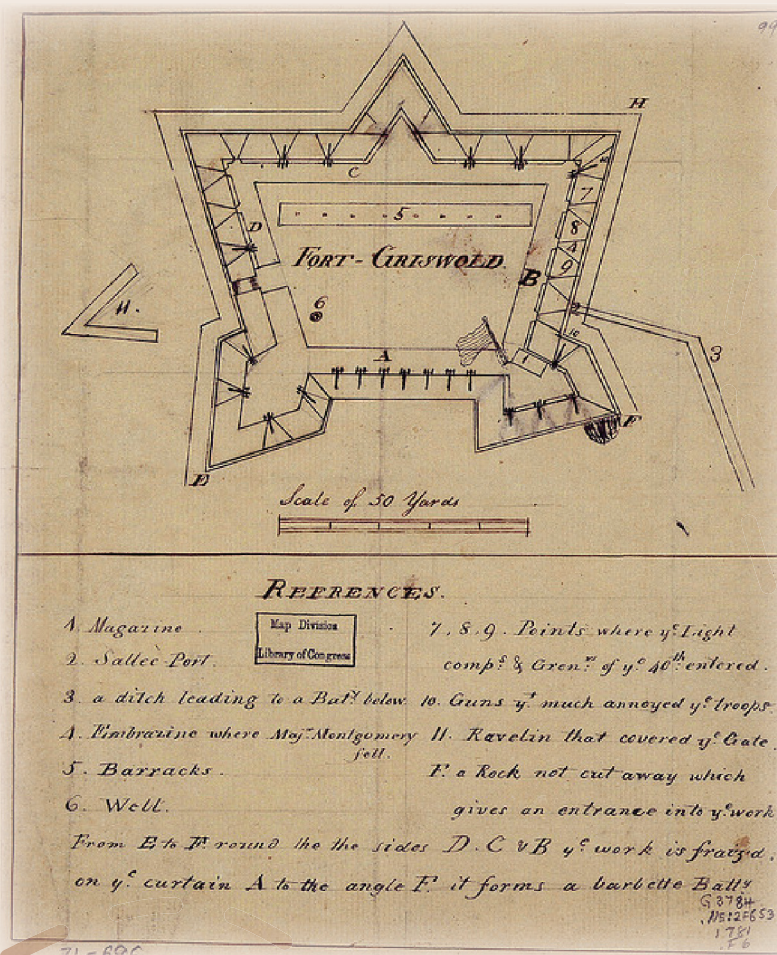 99
H
10
7
C
5
8
D
4
FORT-GRISWOLD.
9
B
2
6
11.
10
3
A
1
F
E
Scale of 50 Yards
REFERENCES.
1. Magazine.
2. Sallee Port.
3. a ditch leading to a Baty. below.
4. Embrazure where Majr. Montgomery fell.
5. Barracks.
6. Well.
Map Division
Library of Congress
7, 8, 9. Points where ye. Light
comps. & Grenrs. of ye. 40th. entered.
10. Guns yt. much annoyed ye. troops.
11. Ravelin that covered ye. Gate.
F. a Rock not cut away which
gives an entrance into ye. work
From E to F. round the the sides D. C & B ye. work is fraized,
on ye. curtain A to the angle F. it forms a barbette Batty
G3784
.N5:2F653
1781
.F6